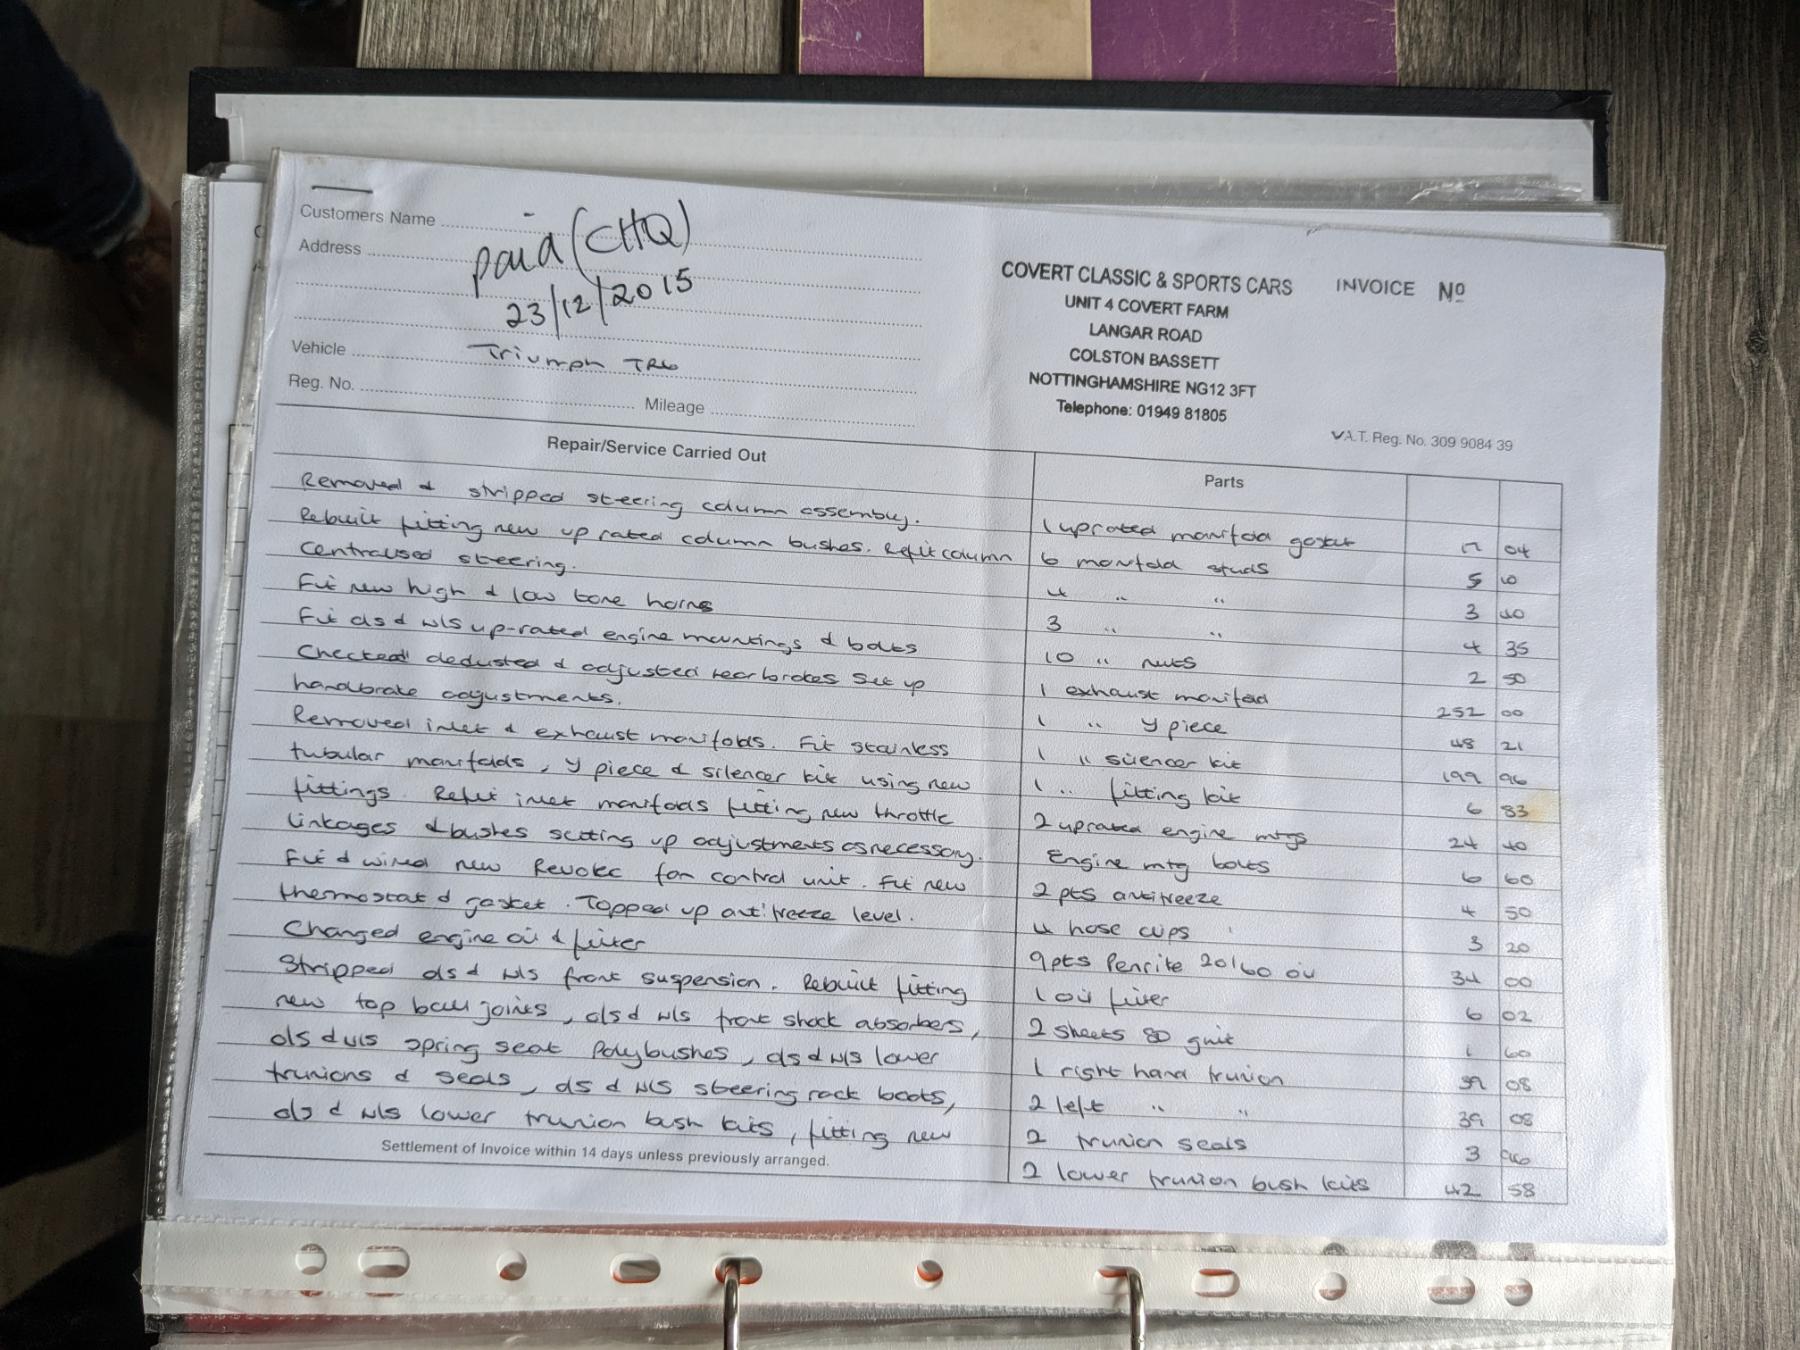 Customers Name
Address
paid (CHQ)
23/12/2015
Vehicle Triumph TR6
Reg. No. Mileage
COVERT CLASSIC & SPORTS CARS
UNIT 4 COVERT FARM
LANGAR ROAD
COLSTON BASSETT
NOTTINGHAMSHIRE NG12 3FT
Telephone: 01949 81805
INVOICE Nº
V.A.T. Reg. No. 309 9084 39
Repair/Service Carried Out
Removed & stripped steering column assembly.
Rebuilt fitting new up rated column bushes. Refit column
Centralised steering.
Fit new high & low tone horns
Fit d/s & n/s up-rated engine mountings & bolts
Checked dedusted & adjusted rear brakes set up
handbrake adjustments.
Removed inlet & exhaust manifolds. Fit stainless
tubular manifolds, y piece & silencer kit using new
fittings. Refit inlet manifolds fitting new throttle
linkages & bushes setting up adjustments as necessary.
Fit & wired new Revotec fan control unit. Fit new
thermostat & gasket. Topped up antifreeze level.
Changed engine oil & filter
Stripped d/s & n/s front suspension. Rebuilt fitting
new top ball joints, d/s & n/s front shock absorbers,
d/s & n/s spring seat Polybushes, d/s & n/s lower
trunions & seals, d/s & n/s steering rack boots,
d/s & n/s lower trunion bush kits, fitting new
Settlement of Invoice within 14 days unless previously arranged.
Parts
1 uprated manifold gasket 04
6 manifold studs 5 10
4 " " 3 40
3 " " 4 35
10 " nuts 2 50
1 exhaust manifold 252 00
1 " y piece 48 21
1 " silencer kit 199 96
1 " fitting kit 6 83
2 uprated engine mtgs 24 40
Engine mtg bolts 6 60
2 pts antifreeze 4 50
4 hose clips 3 20
9 pts Penrite 20/60 oil 34 00
1 oil filter 6 02
2 sheets 80 grit 1 60
1 right hand trunion 39 08
2 left " " 39 08
2 trunion seals 3 96
2 lower trunion bush kits 42 58